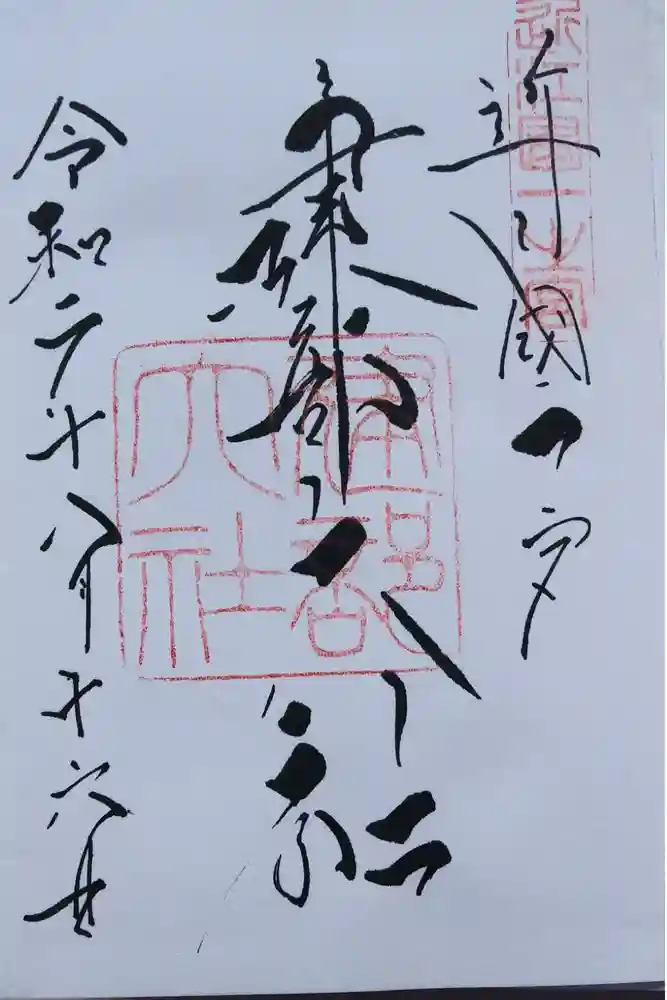 近江國一之宮
近江國一宮
建部大社
建部大社
令和二年八月十六日